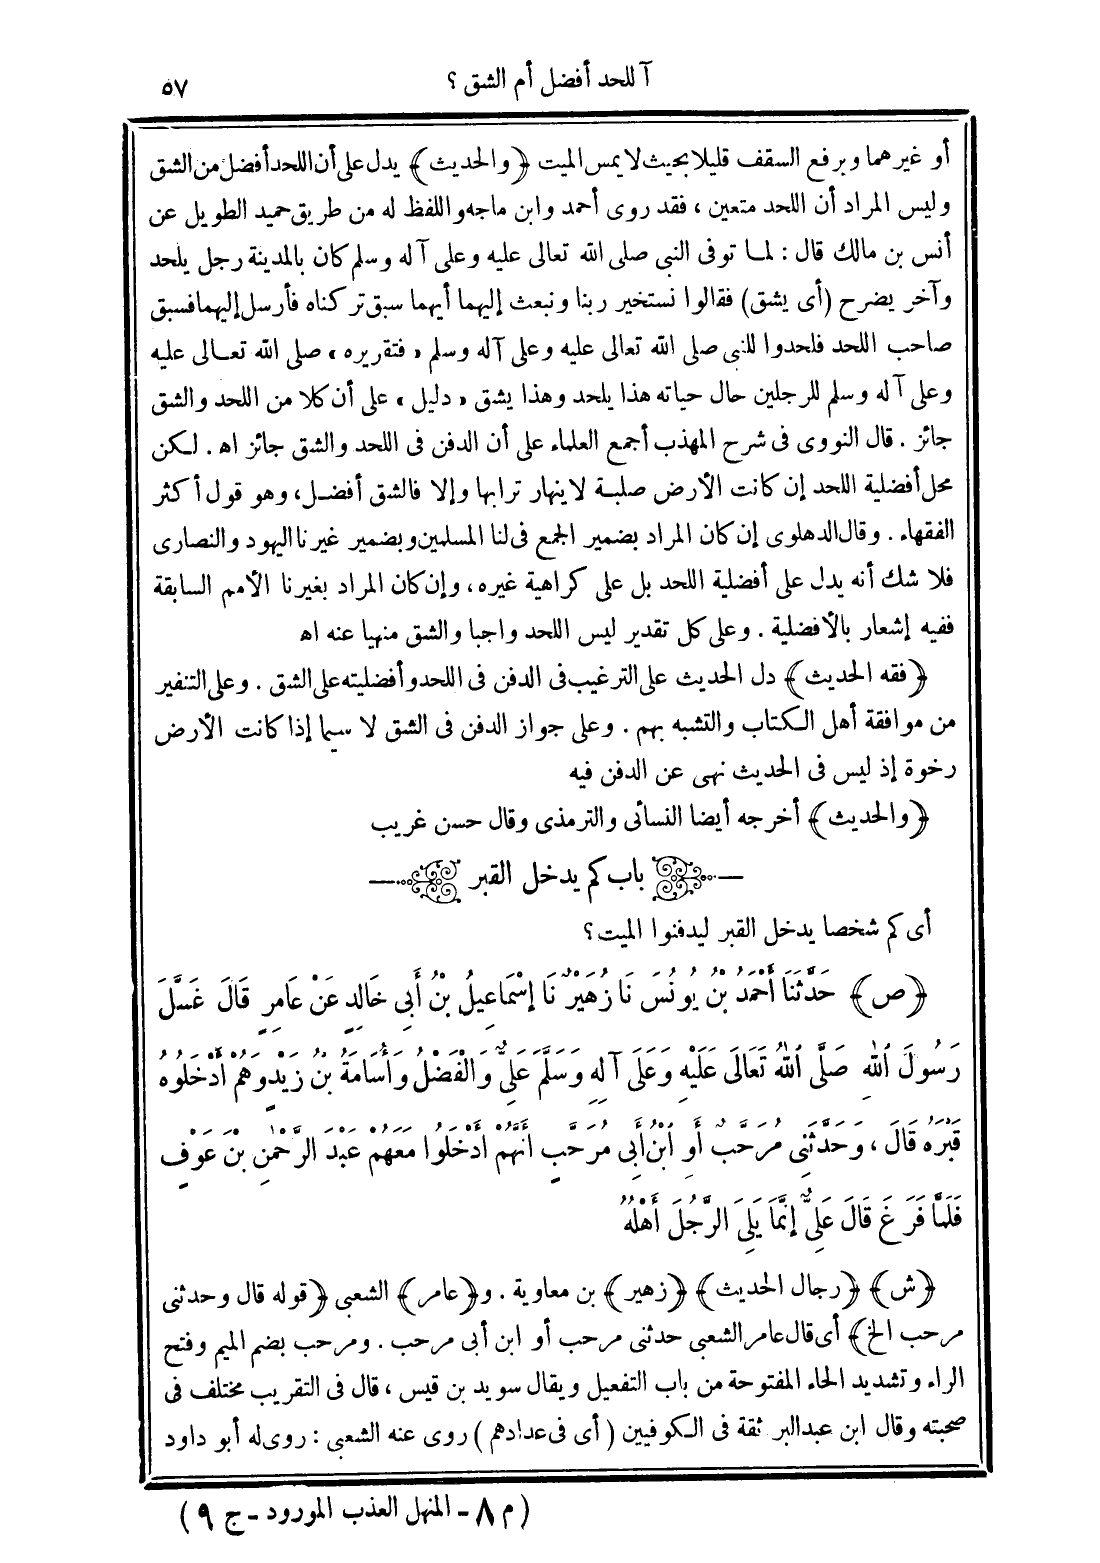 آللحد أفضل أم الشق ؟ ٥٧
أو غيرهما ويرفع السقف قليلا بحيث لا يمس الميت ﴿والحديث﴾ يدل على أن اللحد أفضل من الشق
وليس المراد أن اللحد متعين ، فقد روى أحمد وابن ماجه واللفظ له من طريق حميد الطويل عن
أنس بن مالك قال : لما توفى النبي صلى الله تعالى عليه وعلى آله وسلم كان بالمدينة رجل يلحد
وآخر يضرح (أى يشق) فقالوا نستخير ربنا ونبعث إليهما أيهما سبق تركناه فأرسل إليهما فسبق
صاحب اللحد فلحدوا للنبى صلى الله تعالى عليه وعلى آله وسلم «فتقريره» صلى الله تعالى عليه
وعلى آله وسلم للرجلين حال حياته هذا يلحد وهذا يشق «دليل» على أن كلا من اللحد والشق
جائز . قال النووى فى شرح المهذب أجمع العلماء على أن الدفن فى اللحد والشق جائز اه . لكن
محل أفضلية اللحد إن كانت الأرض صلبة لا ينهار ترابها وإلا فالشق أفضل، وهو قول أكثر
الفقهاء . وقال الدهلوى إن كان المراد بضمير الجمع فى لنا المسلمين وبضمير غيرنا اليهود والنصارى
فلا شك أنه يدل على أفضلية اللحد بل على كراهية غيره، وإن كان المراد بغيرنا الأمم السابقة
ففيه إشعار بالأفضلية . وعلى كل تقدير ليس اللحد واجبا والشق منهيا عنه اه
﴿فقه الحديث﴾ دل الحديث على الترغيب فى الدفن فى اللحد وأفضليته على الشق . وعلى التنفير
من موافقة أهل الكتاب والتشبه بهم . وعلى جواز الدفن فى الشق لا سيما إذا كانت الأرض
رخوة إذ ليس فى الحديث نهى عن الدفن فيه
﴿والحديث﴾ أخرجه أيضا النسائى والترمذى وقال حسن غريب
باب كم يدخل القبر
أى كم شخصا يدخل القبر ليدفنوا الميت؟
﴿ص﴾ حَدَّثَنَا أَحْمَدُ بْنُ يُونُسَ نَا زُهَيْرٌ نَا إِسْمَاعِيلُ بْنُ أَبِي خَالِدٍ عَنْ عَامِرٍ قَالَ غَسَّلَ
رَسُولَ اللهِ صَلَّى اللهُ تَعَالَى عَلَيْهِ وَعَلَى آلِهِ وَسَلَّمَ عَلِيٌّ وَالْفَضْلُ وَأُسَامَةُ بْنُ زَيْدٍ وَهُمْ أَدْخَلُوهُ
قَبْرَهُ قَالَ ، وَحَدَّثَنِى مُرَحَّبٌ أَوِ ابْنُ أَبِى مُرَحَّبٍ أَنَّهُمْ أَدْخَلُوا مَعَهُمْ عَبْدَ الرَّحْمٰنِ بْنَ عَوْفٍ
فَلَمَّا فَرَغَ قَالَ عَلِيٌّ إِنَّمَا يَلِىَ الرَّجُلَ أَهْلُهُ
﴿ش﴾ ﴿رجال الحديث﴾ ﴿زهير﴾ بن معاوية . و﴿عامر﴾ الشعبى ﴿قوله قال وحدثنى
مرحب الخ﴾ أى قال عامر الشعبى حدثنى مرحب أو ابن أبى مرحب . ومرحب بضم الميم وفتح
الراء وتشديد الحاء المفتوحة من باب التفعيل ويقال سويد بن قيس ، قال فى التقريب مختلف فى
صحبته وقال ابن عبدالبر ثقة فى الكوفيين (أى فى عدادهم) روى عنه الشعبى : روى له أبو داود
(م ٨ - المنهل العذب المورود - ج ٩)